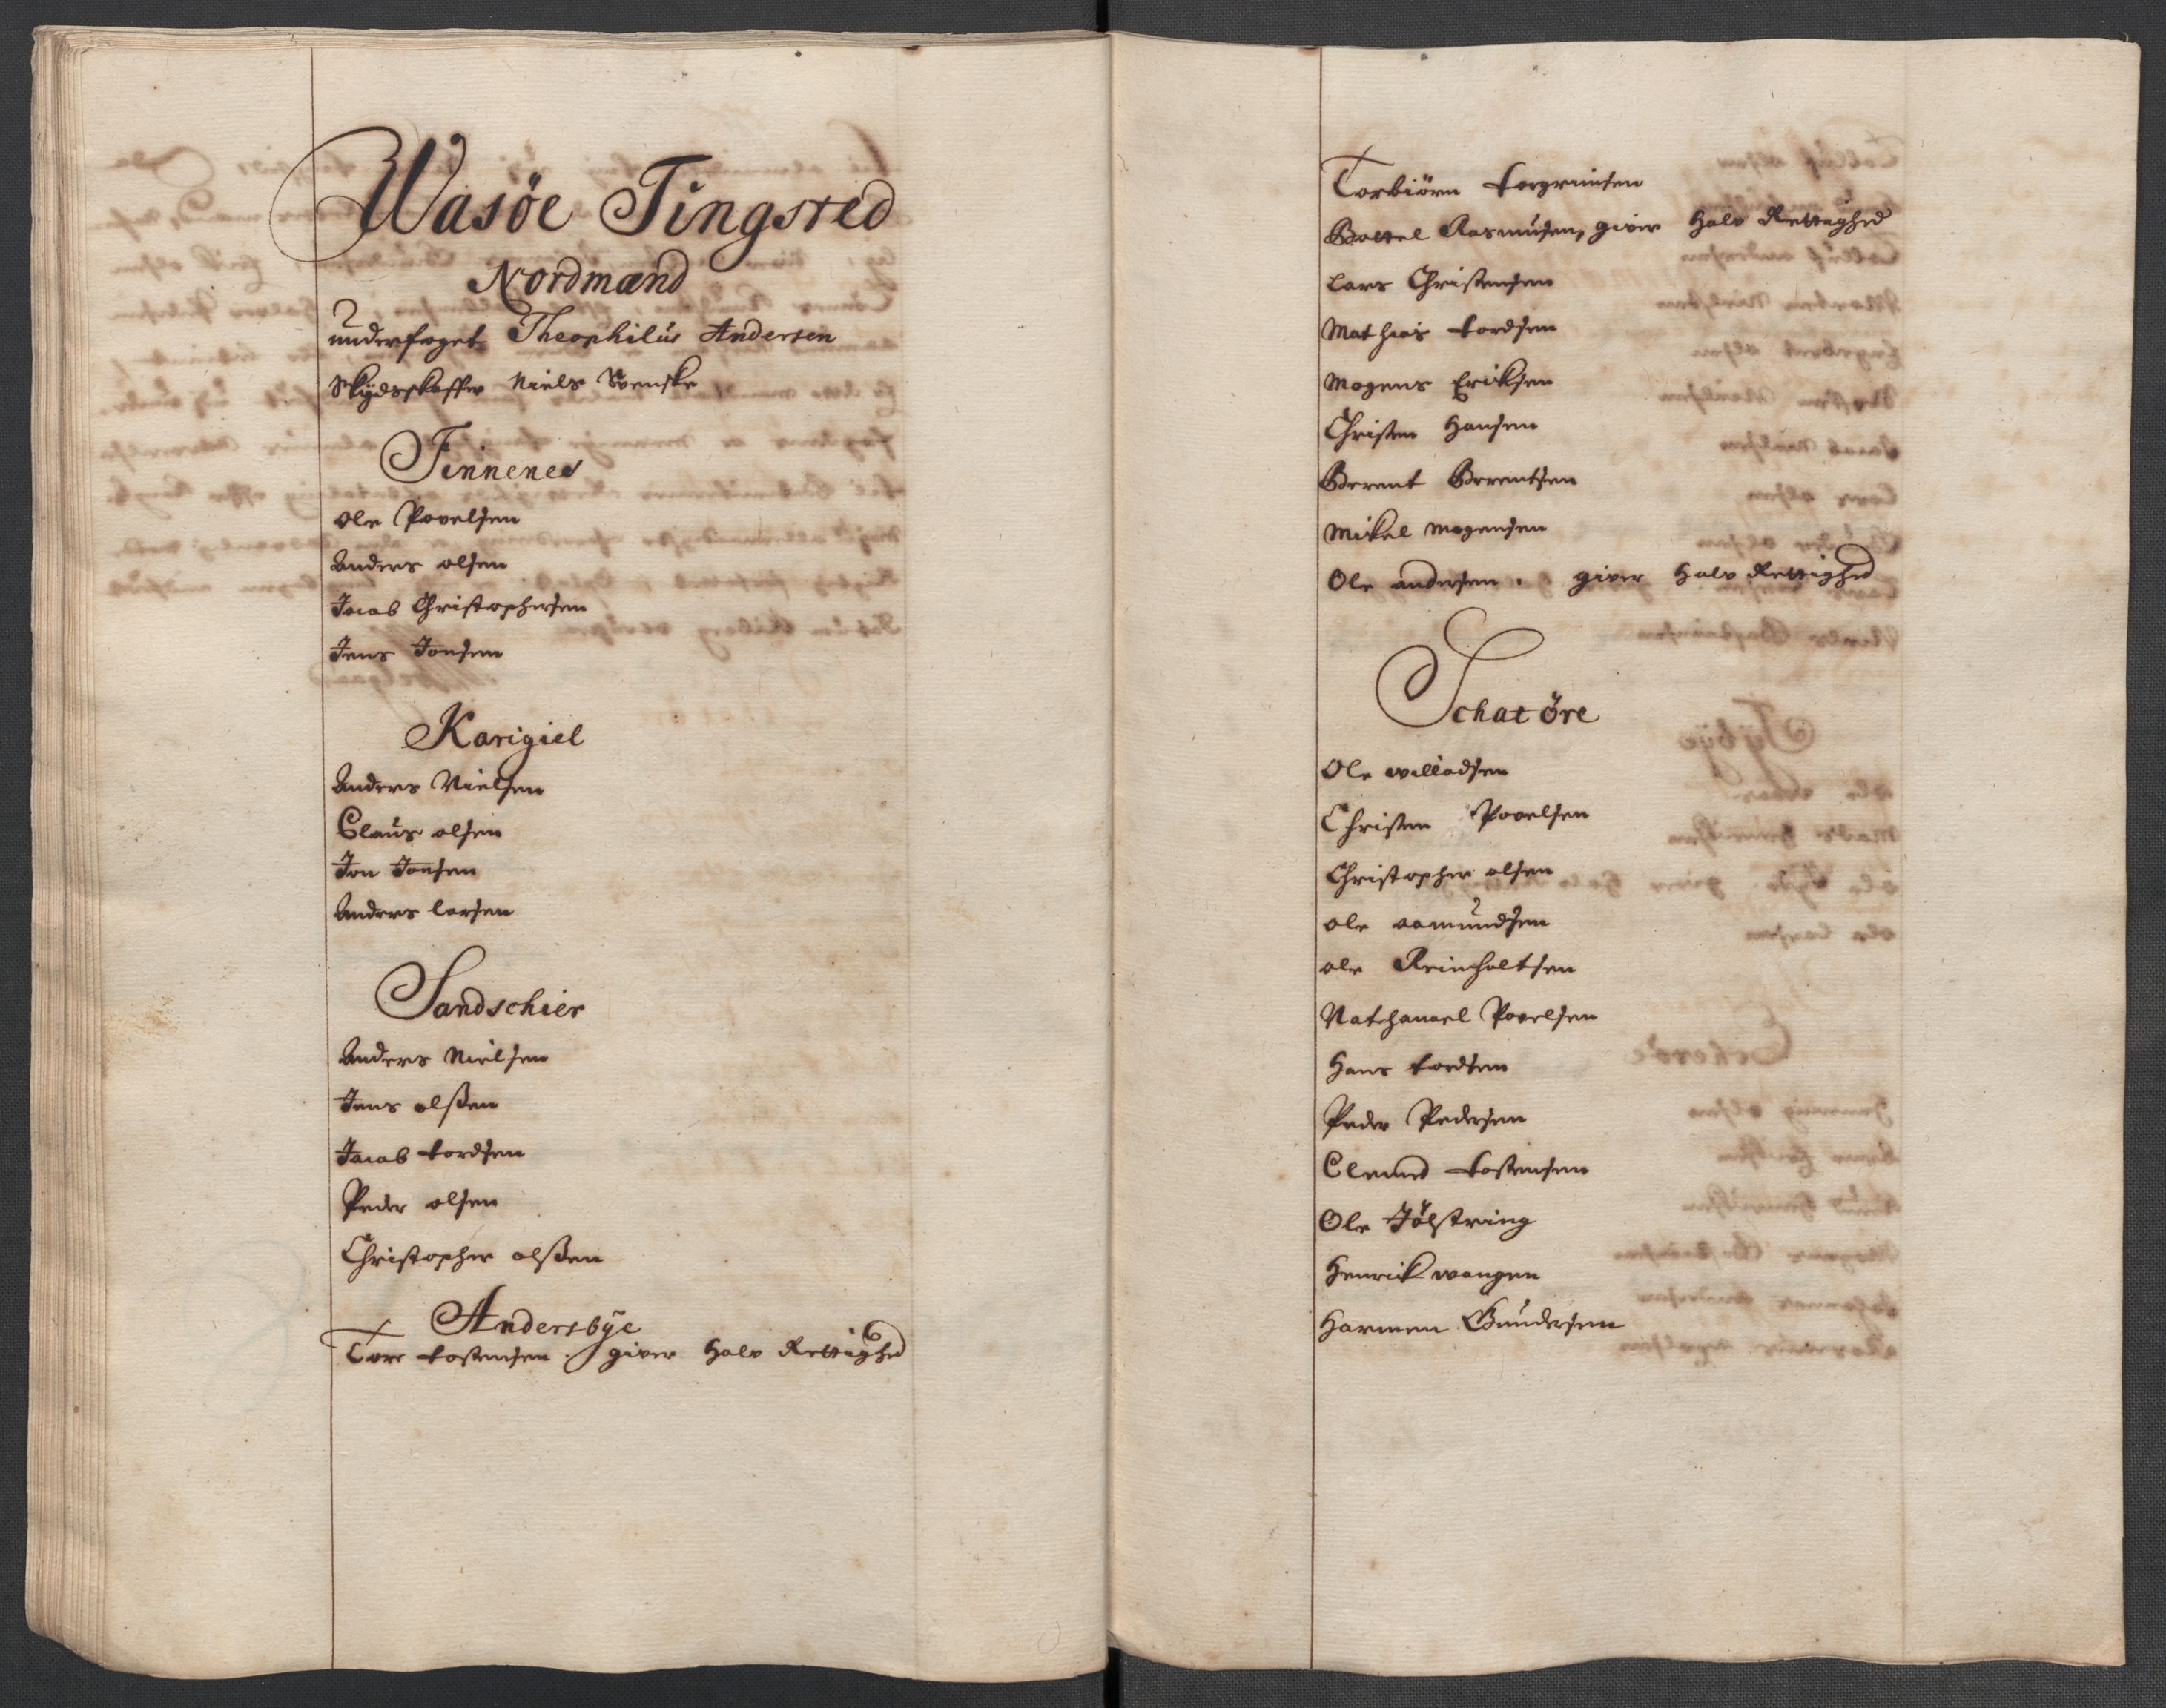 Wasöe Tingsted
Nordmænd
underfoget Theophilus Andersen
Skydsskaffer Niels Svenske
Finnenes
Ole Povelsen
Anders olsen
Jacob Christophersen
Jens Jonsen
Karigiel
Anders Nielsen
Claus olsen
Jon Jonsen
Anders larsen
Sandschier
Anders Nielsen
Jens olssen
Jacob tordsen
Peder olsen
Christopher olssen
Andersbÿe
Tore tostensen. giver Halv Rettighed
Torbiörn torgrimsen
Bottel Rasmusen, giver Halv Rettighed
Lars Christensen
Mathias tordsen
Mogens Eriksen
Christen Hansen
Berent Berentsen
Mikel Mogensen
Ole andersen. giver Halv Rettighed
Schatöre
Ole willadsen
Christen Povelsen
Christopher olsen
ole aamundsen
ole Reinholtsen
Nathanael Povelsen
Hans tordsen
Peder Pedersen
Clemed tostensen
Ole Jölstring
Henrick wangen
Harmen Gundersen